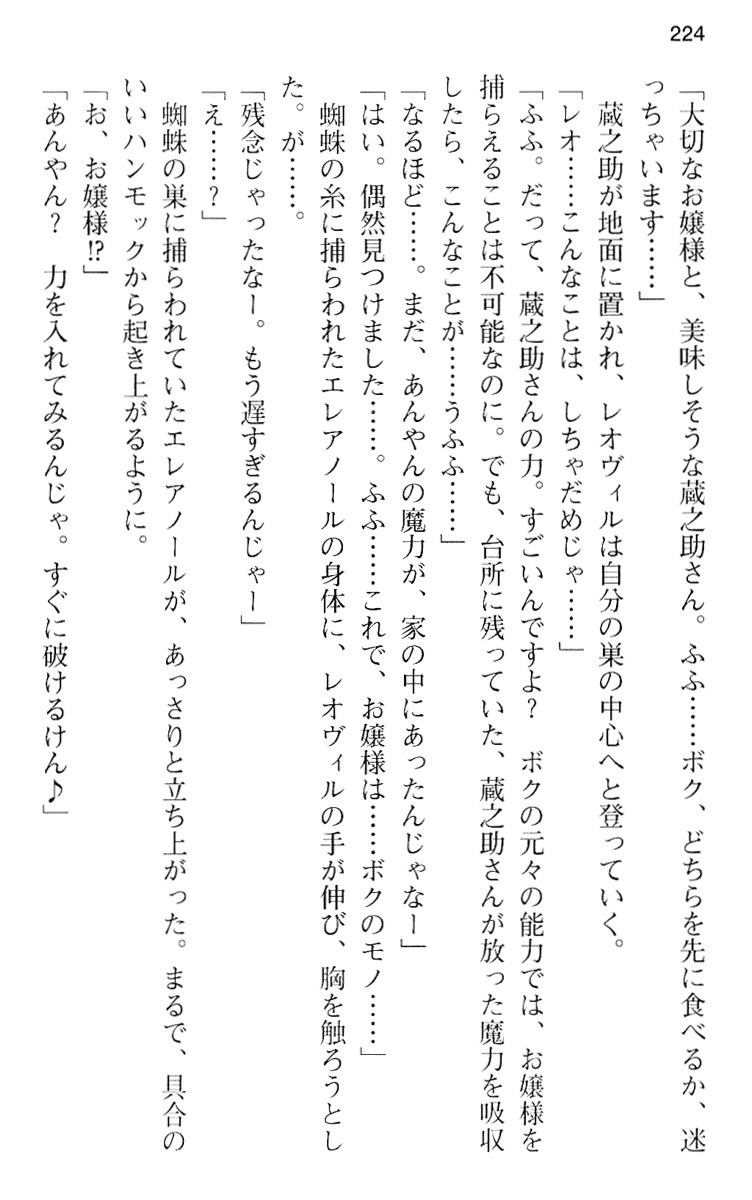 224
「大切なお嬢様と、美味しそうな蔵之助さん。ふふ……ボク、どちらを先に食べるか、迷
っちゃいます……」
　蔵之助が地面に置かれ、レオヴィルは自分の巣の中心へと登っていく。
「レオ……こんなことは、しちゃだめじゃ……」
「ふふ。だって、蔵之助さんの力。すごいんですよ？　ボクの元々の能力では、お嬢様を
捕らえることは不可能なのに。でも、台所に残っていた、蔵之助さんが放った魔力を吸収
したら、こんなことが……うふふ……」
「なるほど……。まだ、あんやんの魔力が、家の中にあったんじゃなー」
「はい。偶然見つけました……。ふふ……これで、お嬢様は……ボクのモノ……」
　蜘蛛の糸に捕らわれたエレアノールの身体に、レオヴィルの手が伸び、胸を触ろうとし
た。が……。
「残念じゃったなー。もう遅すぎるんじゃー」
「え……？」
　蜘蛛の巣に捕らわれていたエレアノールが、あっさりと立ち上がった。まるで、具合の
いいハンモックから起き上がるように。
「お、お嬢様!?」
「あんやん？　力を入れてみるんじゃ。すぐに破けるけん♪」